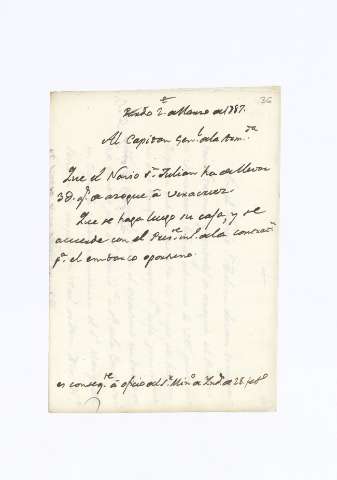 36
2 de Marzo de 1787.
Al Capitan Gen.l de la Arm.da
Que el Navio S.n Julian ha de llevar
3 D. q.s de azogue á Veracruz.
Que se haga luego su caja, y se
acuerde con el Pres.te de la contrat.n
p.a el embarco oportuno.
es conseq.te á oficio del S.r Min.o de Ind.s de 28 feb.o